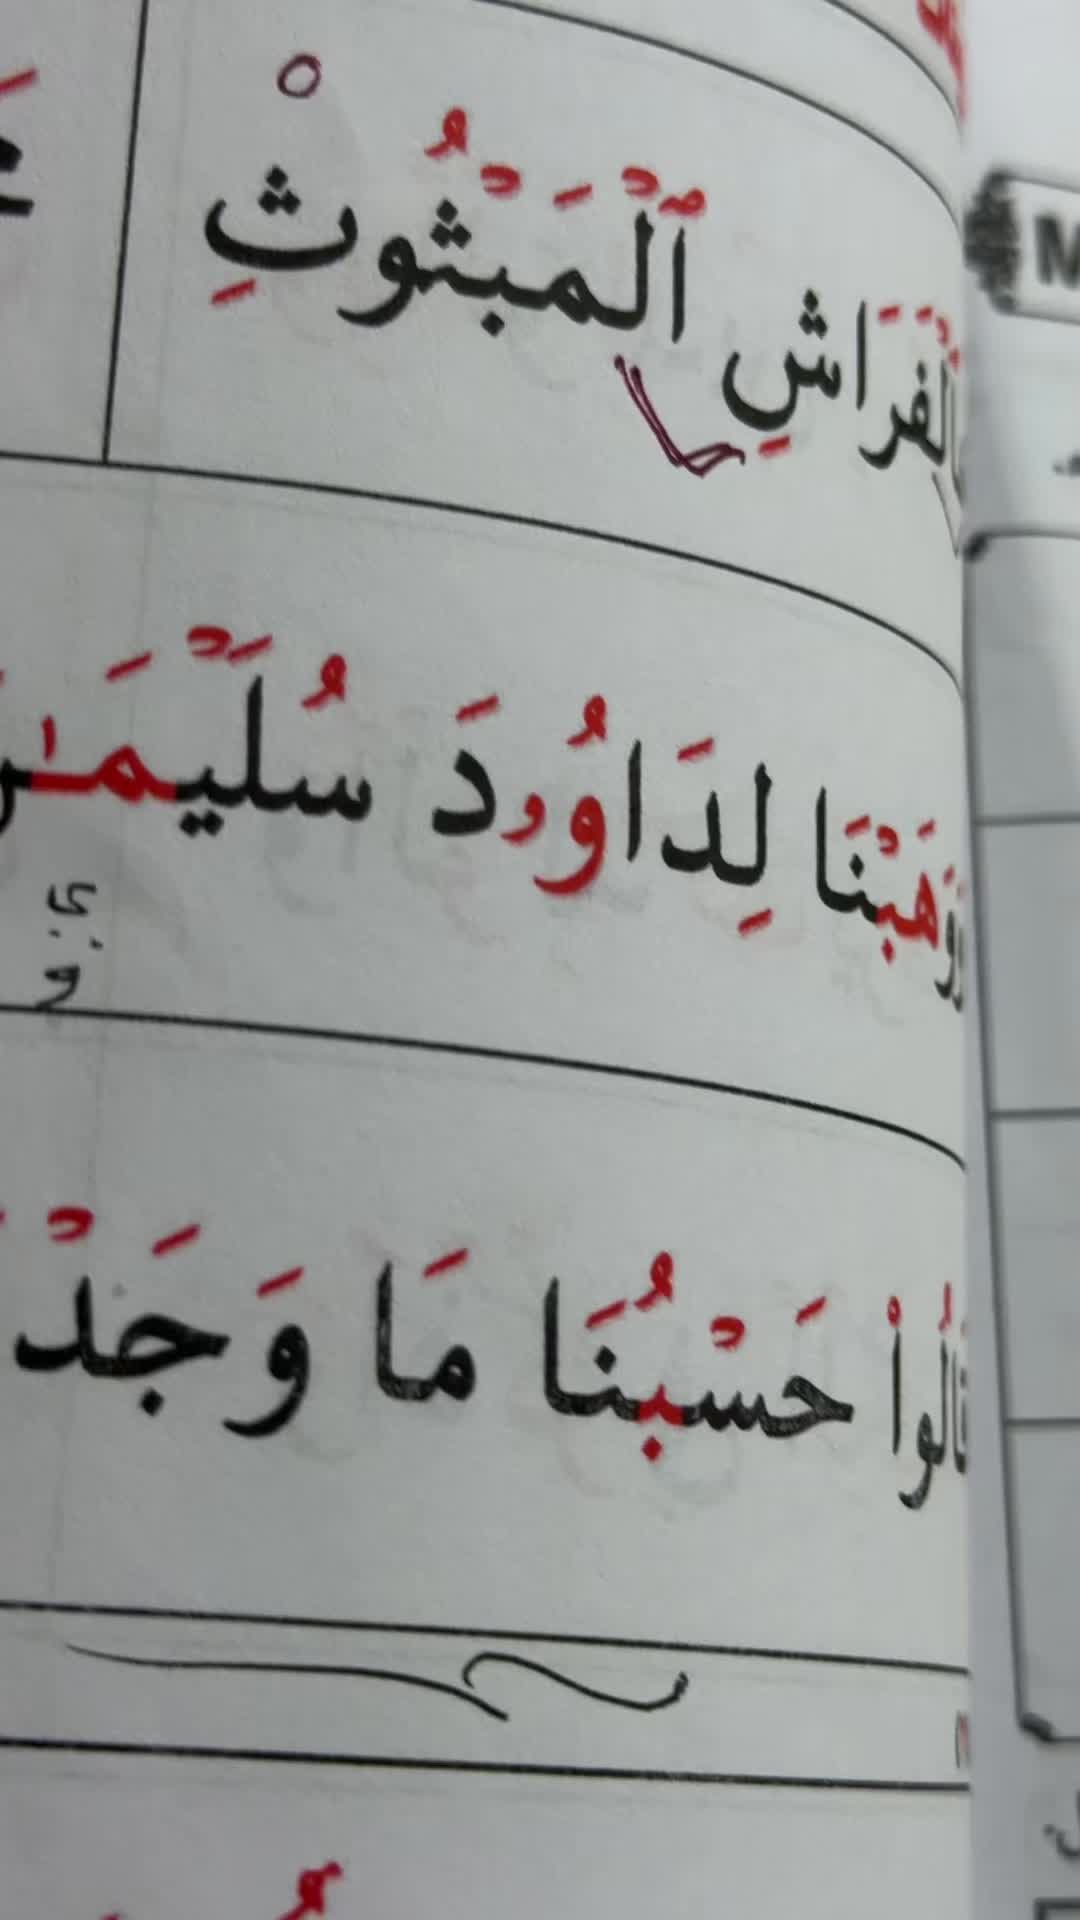 ٱلْفَرَاشِ ٱلْمَبْثُوثِ
وَوَهَبْنَا لِدَاوُۥدَ سُلَيْمَـٰ
قَالُوا۟ حَسْبُنَا مَا وَجَدْ